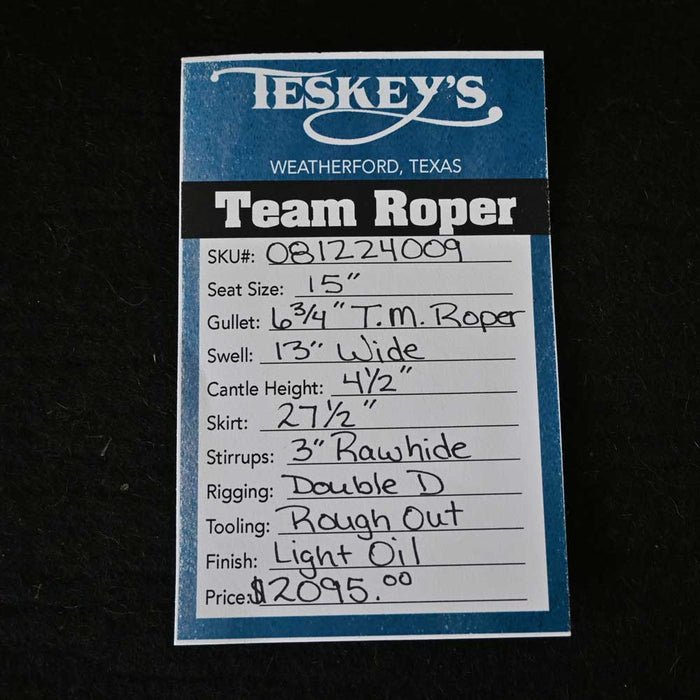 TESKEY'S
WEATHERFORD, TEXAS
Team Roper
SKU#: 081224009
Seat Size: 15"
Gullet: 6 3/4" T.M. Roper
Swell: 13" Wide
Cantle Height: 4 1/2"
Skirt: 27 1/2"
Stirrups: 3" Rawhide
Rigging: Double D
Tooling: Rough Out
Finish: Light Oil
Price: $2095.00